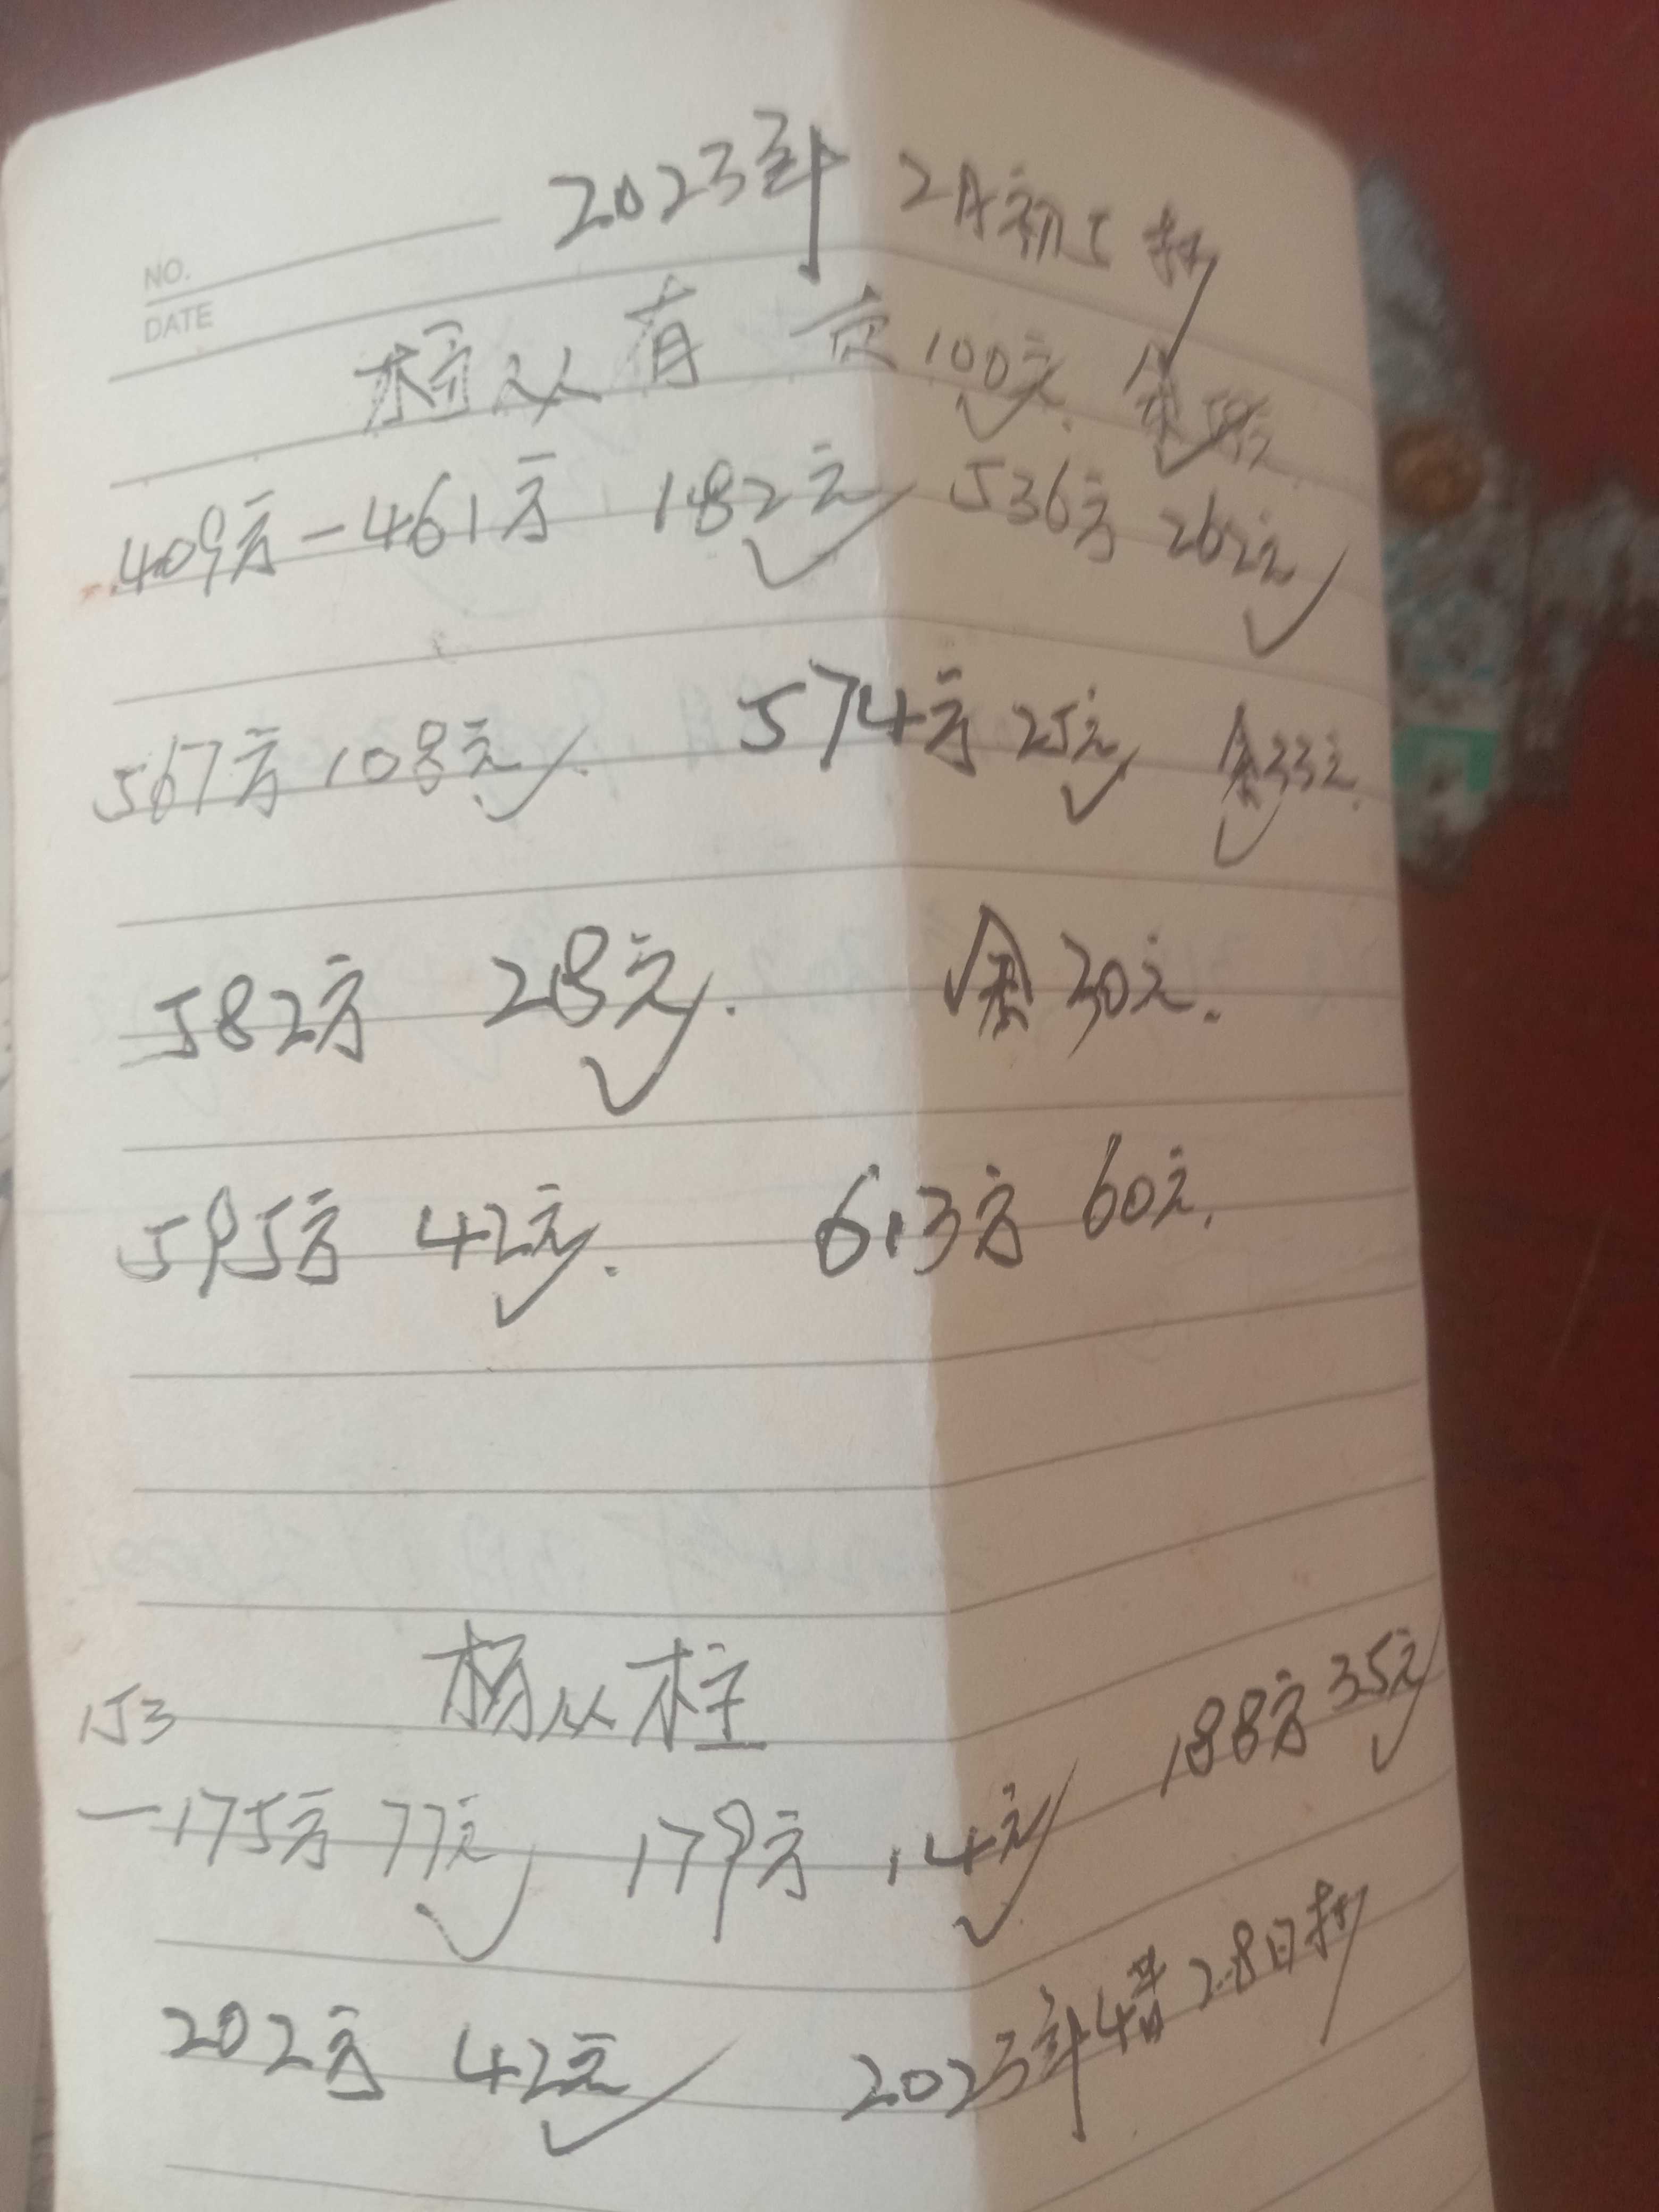 2023年 2月初5抄
NO.
DATE
杨从有 欠100元. 余58元
409方-461方 182元 536方 262元
567方 108元. 574方 25元 余33元.
582方 28元. 余30元.
595方 42元. 613方 60元.
杨从柱
153
-175方 77元 179方 14元 188方 35元
202方 42元 2023年4 28日抄